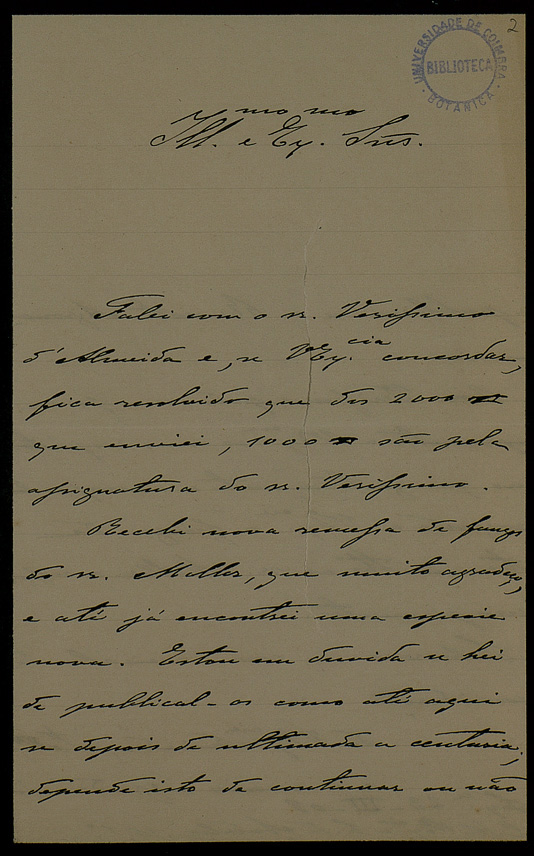 2
UNIVERSIDADE DE COIMBRA
BIBLIOTECA
BOTANICA
Ill.mo e Ex.mo Snr.
Falei com o sr. Verissimo
d'Almeida e, se V Ex.cia concordar,
fica resolvido que dos 2000
que enviei, 1000 são pela
assignatura do sr. Verissimo.
Recebi nova remessa de fungos
do sr. Moller, que muito agradeço,
e até já encontrei uma especie
nova. Estou em duvida se hei
de publical-os como até aqui
se depois de ultimada a centuria;
depende isto de continuar ou não